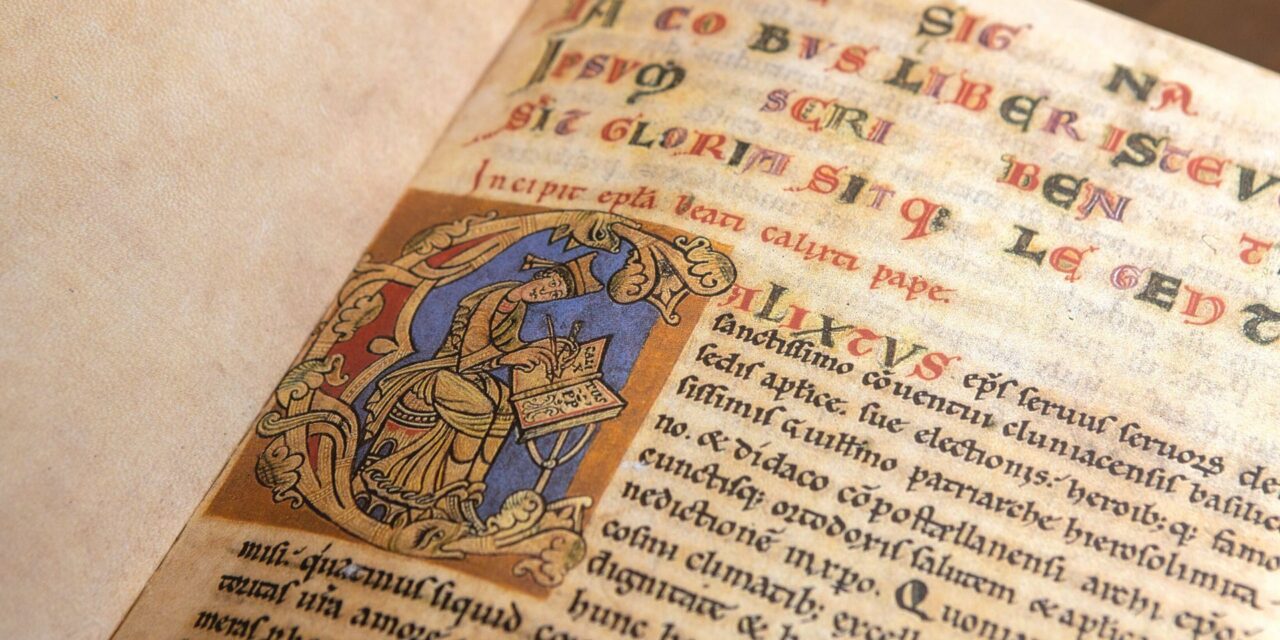 SIG NA
IACOBVS LIBER ISTE V
IPSVM SCRI BEN T
SIT GLORIA SIT Q; LE GEN T
Incipit epła beati calixti pape.
CALIXTVS ep̄ſ ſeruuſ ſeruoꝝ de
ſanctiſſimo cōuentui cluniacenſiſ baſilice
ſediſ ap̄lice. ſue electioniſ: heroib; q; famo
ſiſſimiſ Guiłłmo patriarche hieroſolimita
no. & didaco cōpoſtellanenſi archi ep̄o
cunctiſq; ortodoxiſ ſalutem & ap̄lic
nedictionē in xp̄o. Quoni
coſmi climatib; excell
dignitate &
miſi. quatinuſ ſiquid co hunc
toritaſ ura amore